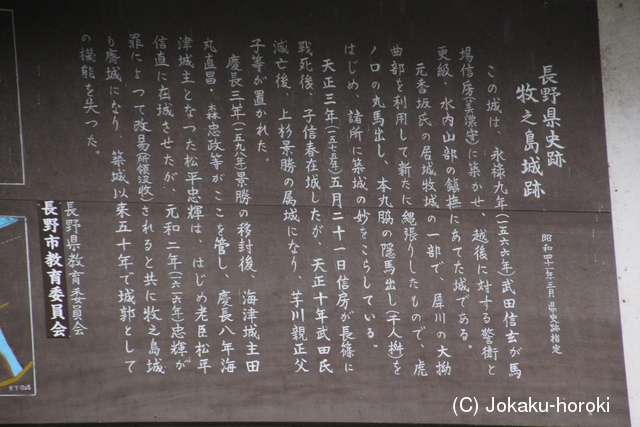 長野県史跡
牧之島城跡
昭和四十一年三月 県史跡指定
この城は、永禄九年(一五六六年)武田信玄が馬
場信房(美濃守)に築かせ、越後に対する警衛と
更級・水内山部の鎮撫にあてた城である。
元香坂氏の居城牧城の一部で、犀川の大拗
曲部を利用して新たに縄張りしたもので、虎
ノ口の丸馬出し、本丸脇の隠馬出し(千人桝)を
はじめ、諸所に築城の妙をこらしている。
天正三年(一五七五年)五月二十一日信房が長篠に
戦死後、子信春在城したが、天正十年武田氏
滅亡後、上杉景勝の属城になり、芋川親正父
子等が置かれた。
慶長三年(一五九八年)景勝の移封後、海津城主田
丸直昌・森忠政等がここを管し、慶長八年海
津城主となつた松平忠輝は、はじめ老臣松平
信直に在城させたが、元和二年(一六一六年)忠輝が
罪によつて改易(所領没収)されると共に牧之島城
も廃城になり、築城以来五十年で城郭として
の機能を失つた。
長野県教育委員会
長野市教育委員会
(C) Jokaku-horoki